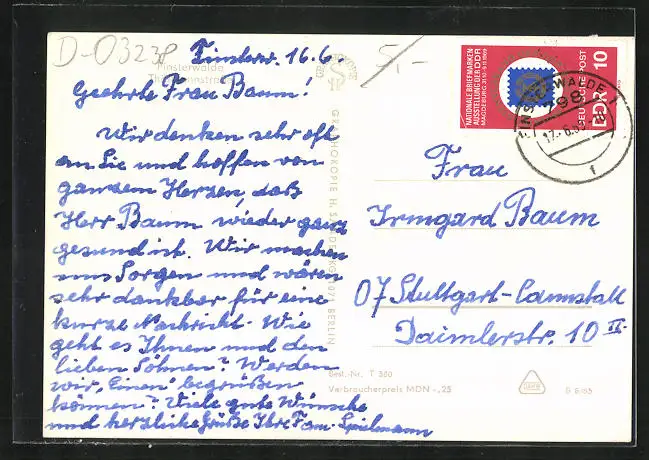 D-03238
Finsterw. 16.6.
5,-
Finsterwalde
Geehrte Frau Baum!
Wir denken sehr oft
an Sie und hoffen von
ganzem Herzen, daß
Herr Baum wieder ganz
gesund ist. Wir machen
uns Sorgen und wären
sehr dankbar für eine
kurze Nachricht. Wie
geht es Ihnen und den
lieben Söhnen? Werden
wir "Einen" begrüßen
können? Viele gute Wünsche
und herzliche Grüße Ihre Fam. Spielmann
BERLIN
NATIONALE BRIEFMARKEN-
AUSSTELLUNG DER DDR
MAGDEBURG 31.10.-9.11.1969
DEUTSCHE POST
DDR 10
FINSTERWALDE 1
798
Frau
Irmgard Baum
07 Stuttgart-Cannstatt
Daimlerstr. 10 II.
Best.-Nr. T 360
Verbraucherpreis MDN -,25